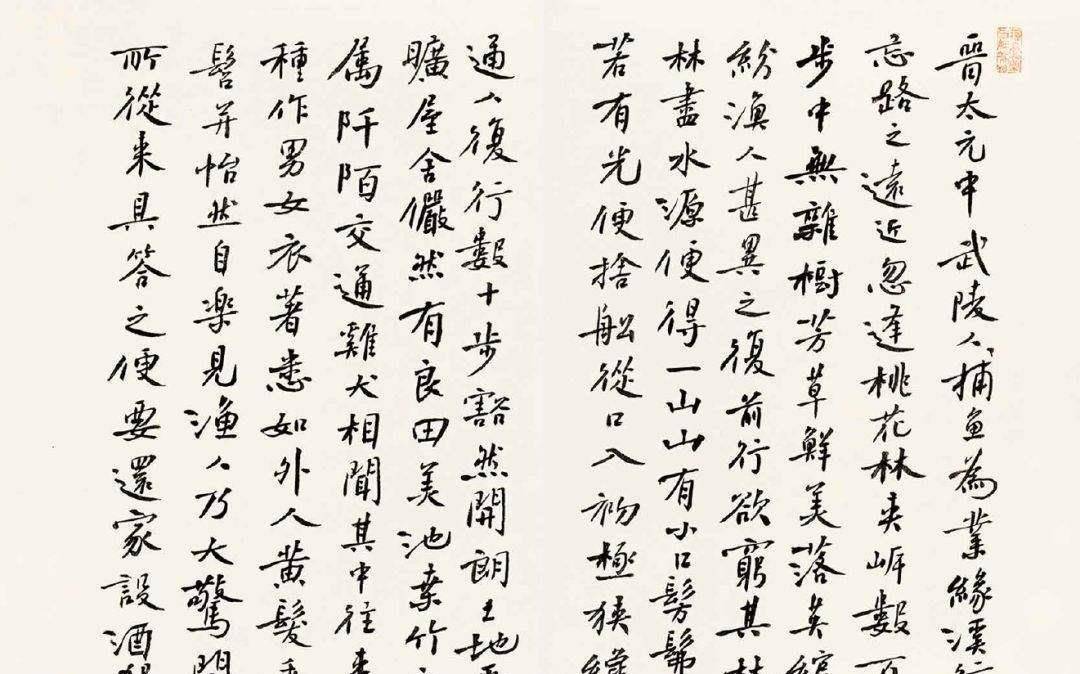 晉太元中武陵人捕魚為業緣溪行
忘路之遠近忽逢桃花林夾岸數百
步中無雜樹芳草鮮美落英繽
紛漁人甚異之復前行欲窮其林
林盡水源便得一山山有小口髣髴
若有光便捨船從口入初極狹纔
通人復行數十步豁然開朗土地
曠屋舍儼然有良田美池桑竹
属阡陌交通雞犬相聞其中往来
種作男女衣著悉如外人黄髮
髫并怡然自樂見漁人乃大驚問
所從来具答之便要還家設酒殺